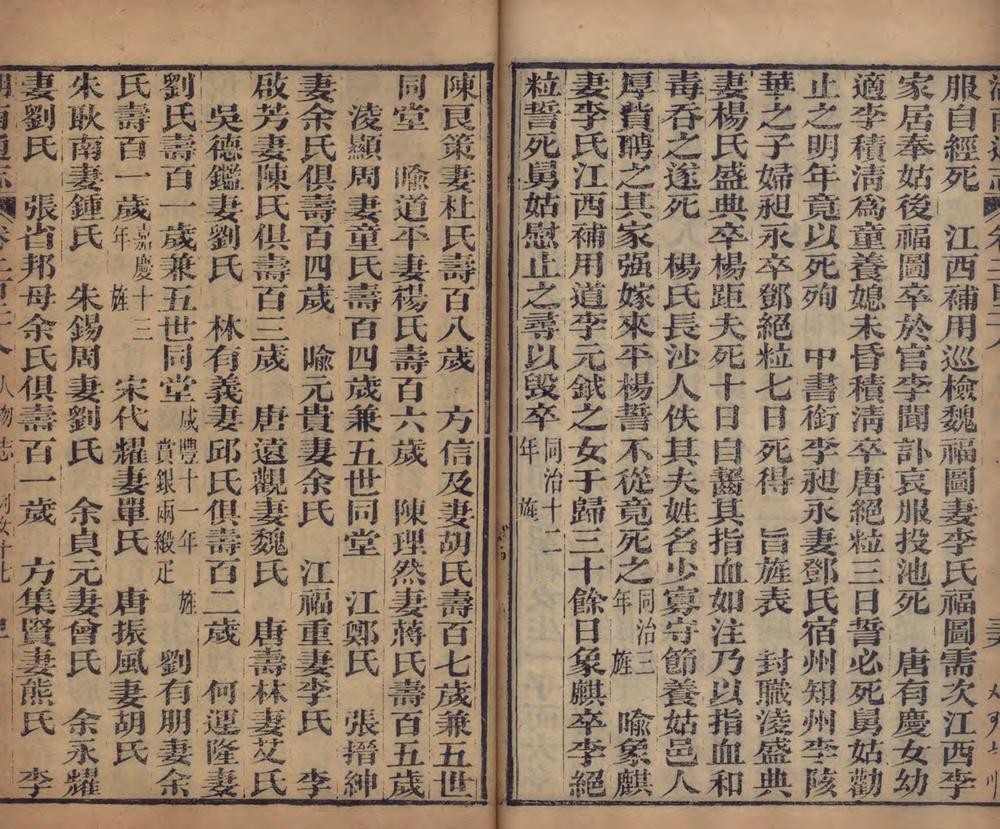 服自經死　江西補用巡檢魏福圖妻李氏福圖需次江西李
家居奉姑後福圖卒於官李聞訃哀服投池死　唐有慶女幼
適李積清為童養媳未昏積清卒唐絕粒三日誓必死舅姑勸
止之明年竟以死殉　甲書銜李昶永妻鄧氏宿州知州李陔
華之子婦昶永卒鄧絕粒七日死得　旨旌表　封職淩盛典
妻楊氏盛典卒楊距夫死十日自齧其指血如注乃以指血和
毒吞之遂死　楊氏長沙人佚其夫姓名少寡守節養姑邑人
厚貲聘之其家强嫁來平楊誓不從竟死之同治三年旌　喻象麒
妻李氏江西補用道李元鉞之女于歸三十餘日象麒卒李絕
粒誓死舅姑慰止之尋以毀卒同治十二年旌
陳艮策妻杜氏壽百八歲　方信及妻胡氏壽百七歲兼五世
同堂　喻道平妻楊氏壽百六歲　陳理然妻蔣氏壽百五歲
淩顯周妻童氏壽百四歲兼五世同堂　江鄭氏　張搢紳
妻余氏俱壽百四歲　喻元貴妻余氏　江福重妻李氏　李
啟芳妻陳氏俱壽百三歲　唐遠觀妻魏氏　唐壽林妻艾氏
吳德鑑妻劉氏　林有義妻邱氏俱壽百二歲　何運隆妻
劉氏壽百一歲兼五世同堂咸豐十一年旌賞銀兩緞疋　劉有朋妻余
氏壽百一歲嘉慶十三年旌　宋代耀妻單氏　唐振風妻胡氏
朱耿南妻鍾氏　朱錫周妻劉氏　余貞元妻曾氏　余永耀
妻劉氏　張省邦母余氏俱壽百一歲　方集賢妻熊氏　李